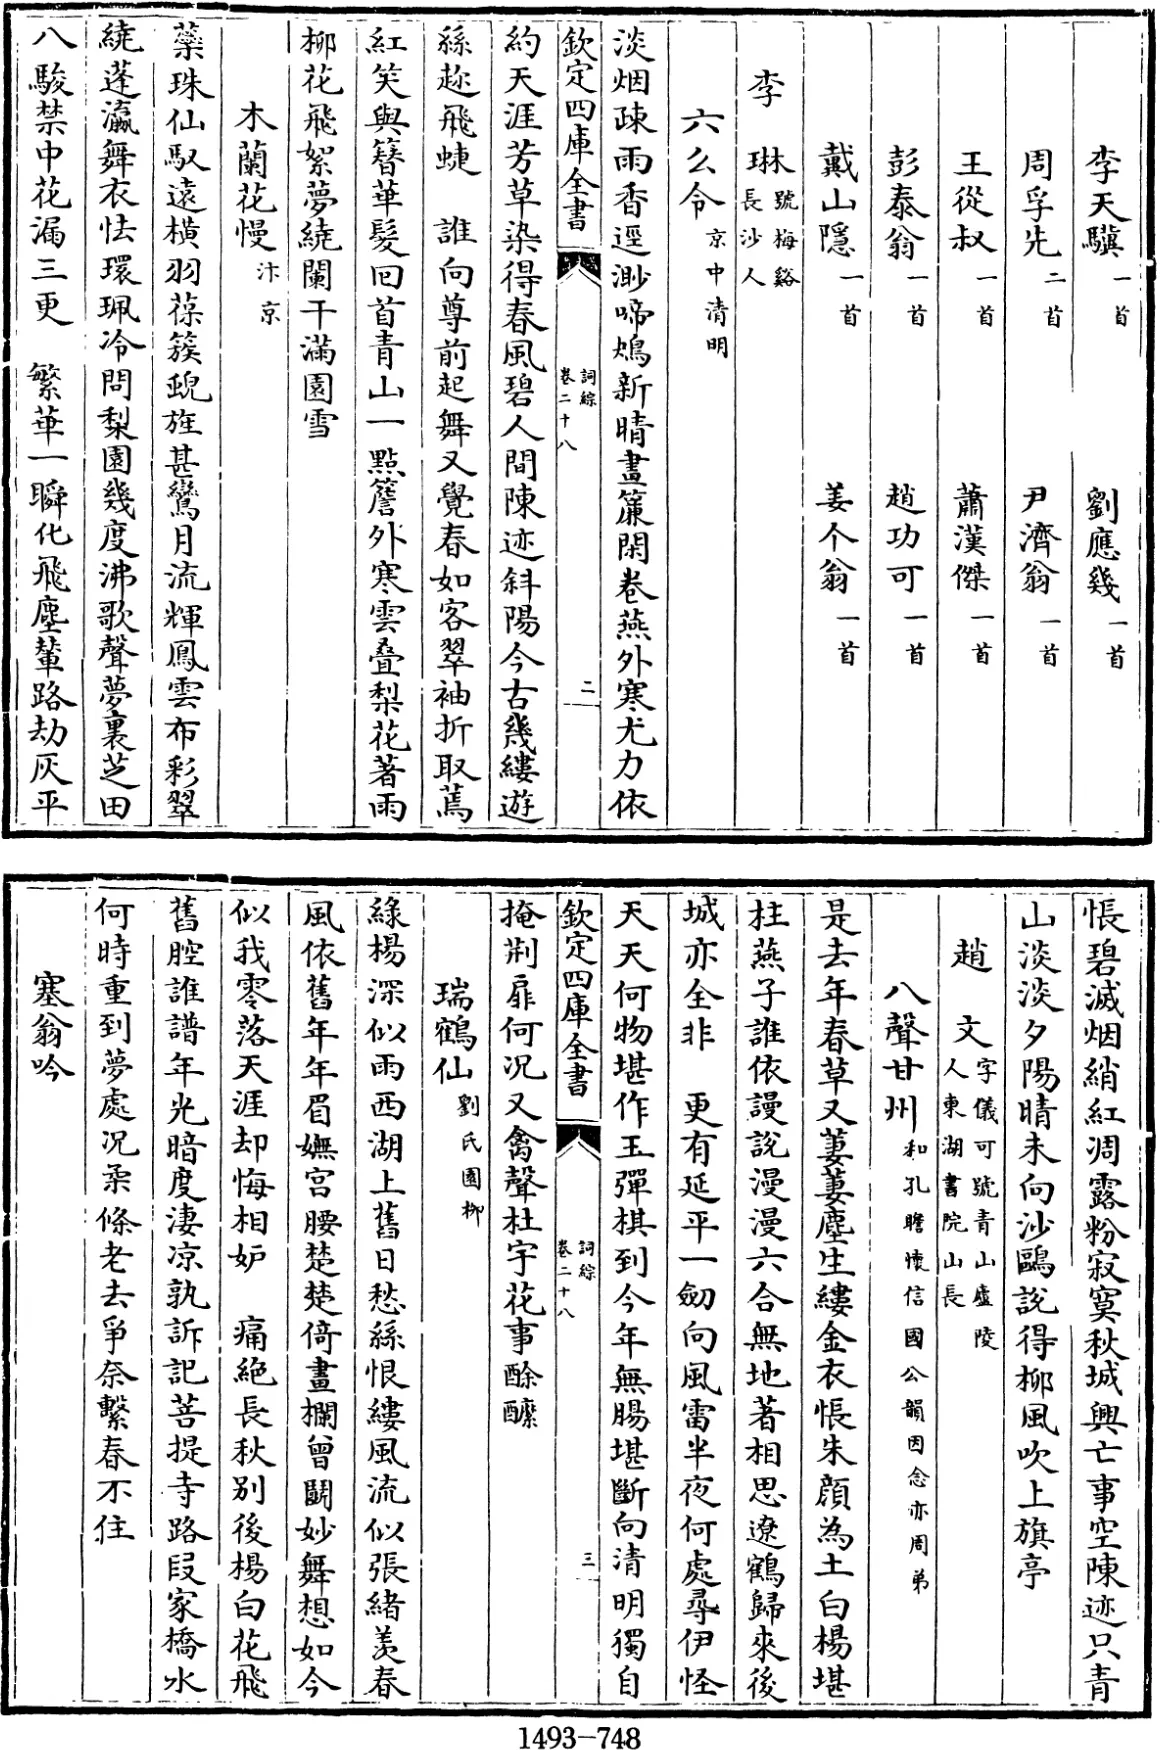 李天驥一首　劉應幾一首
周孚先二首　尹濟翁一首
王從叔一首　蕭漢傑一首
彭泰翁一首　趙功可一首
戴山隱一首　姜个翁一首
李　琳號梅谿長沙人
六么令京中清明
淡烟疎雨香逕渺啼鴂新晴畫簾閑卷燕外寒尤力依
欽定四庫全書　詞綜卷二十八　二
約天涯芳草染得春風碧人間陳迹斜陽今古幾縷遊
絲趂飛蜨　誰向尊前起舞又覺春如客翠袖折取蔫
紅笑與簪華髮回首青山一點簷外寒雲疊梨花著雨
柳花飛絮夢繞闌干滿園雪
木蘭花慢汴京
蘂珠仙馭遠橫羽葆簇蜺旌甚鸞月流輝鳳雲布彩翠
繞蓬瀛舞衣怯環珮冷問梨園幾度沸歌聲夢裏芝田
八駿禁中花漏三更　繁華一瞬化飛塵輦路劫灰平
悵碧滅烟綃紅凋露粉寂寞秋城興亡事空陳迹只青
山淡淡夕陽晴未向沙鷗說得柳風吹上旗亭
趙　文字儀可號青山盧陵人東湖書院山長
八聲甘州和孔瞻懷信國公韻因念亦周弟
是去年春草又萋萋塵生縷金衣悵朱顔為土白楊堪
柱燕子誰依謾說漫漫六合無地著相思遼鶴歸來後
城亦全非　更有延平一劒向風雷半夜何處尋伊怪
天天何物堪作玉彈棋到今年無腸堪斷向清明獨自
欽定四庫全書　詞綜卷二十八　三
掩荆扉何况又禽聲杜宇花事酴醿
瑞鶴仙劉氏園柳
綠楊深似雨西湖上舊日愁絲恨縷風流似張緒羨春
風依舊年年眉嫵宫腰楚楚倚畫欄曾鬭妙舞想如今
似我零落天涯却悔相妒　痛絶長秋别後楊白花飛
舊腔誰譜年光暗度淒凉孰訴記菩提寺路段家橋水
何時重到夢處况柔條老去爭奈繫春不住
塞翁吟
1493-748